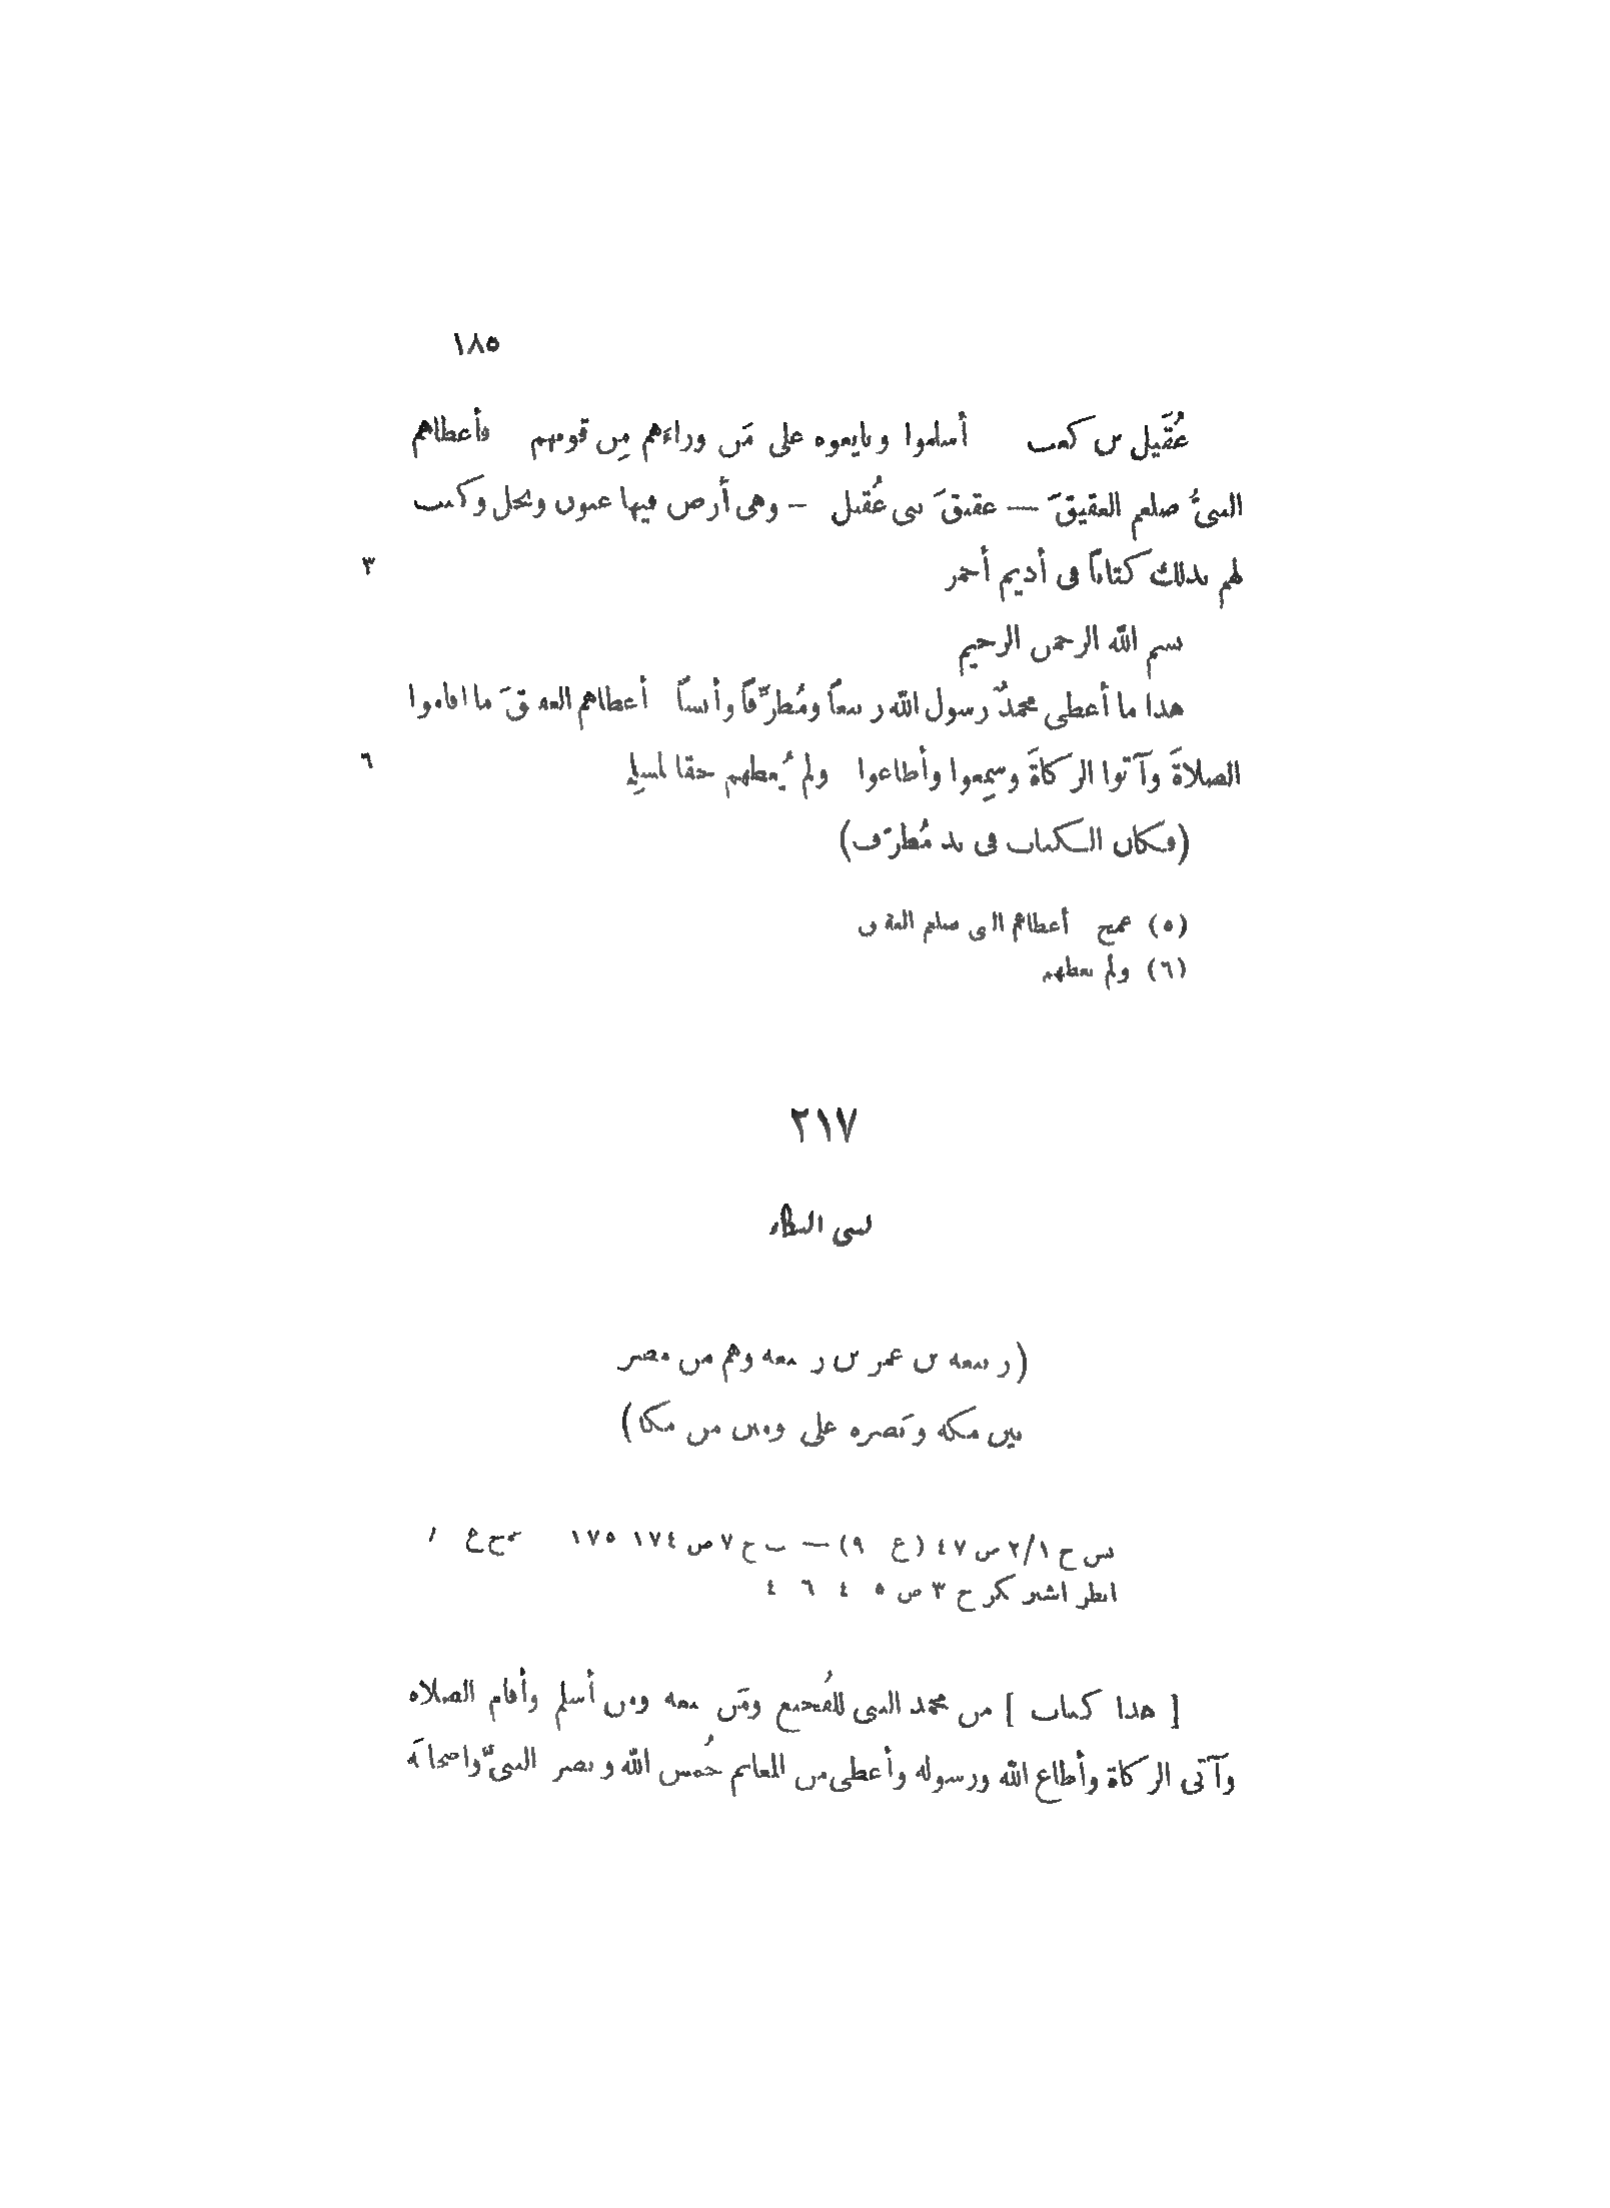 ١٨٥
عُقَيل بن كعب أسلموا وبايعوه على مَن وراءَهم مِن قومهم فأعطاهم
النبىُّ صلعم العقيقَ — عقيقَ بنى عُقيل — وهى أرض فيها عيون ونخل وكتب
٣
لهم بذلك كتاباً فى أديم أحمر
بسم الله الرحمن الرحيم
هذا ما أعطى محمدٌ رسول الله ربيعاً ومُطرِّفاً وأنساً أعطاهم العقيقَ ما أقاموا
٦
الصلاةَ وآتوا الزكاةَ وسمِعوا وأطاعوا ولم يُعطهم حقا لمسلِم
(وكان الكتاب فى يد مُطرّف)
(٥) عمخ أعطاهم النبى صلعم العقيق
(٦) ولم يعطهم
٢١٧
لبنى البكاء
(ربيعة بن عمر بن ربيعة وهم من مضر
بين مكة وبَصرة على يومين من مكة)
بس ج ٢/١ ص ٤٧ (ع ٩) — ب ج ٧ ص ١٧٤ ١٧٥
انظر اشبر نكر ج ٣ ص ٥ ٤ ٦ ٤
[هذا كتاب] من محمد النبى للفُجيع ومَن تبعه ومن أسلم وأقام الصلاة
وآتى الزكاة وأطاع الله ورسوله وأعطى من المغانم خُمس الله ونصر النبىَّ وأصحابَه